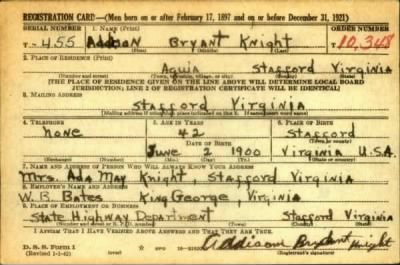 REGISTRATION CARD—(Men born on or after February 17, 1897 and on or before December 31, 1921)
SERIAL NUMBER 1. NAME (Print) ORDER NUMBER
T-455 Addison Bryant Knight 10,348
(First) (Middle) (Last)
2. PLACE OF RESIDENCE (Print)
Aquia Stafford Virginia
(Number and street) (Town, township, village, or city) (County) (State)
[THE PLACE OF RESIDENCE GIVEN ON THE LINE ABOVE WILL DETERMINE LOCAL BOARD
JURISDICTION; LINE 2 OF REGISTRATION CERTIFICATE WILL BE IDENTICAL]
3. MAILING ADDRESS
Stafford Virginia
(Mailing address if other than place indicated on line 2. If same insert word same)
4. TELEPHONE 5. AGE IN YEARS 6. PLACE OF BIRTH
None 42 Stafford
DATE OF BIRTH (Town or county)
June 2 1900 Virginia U.S.A.
(Exchange) (Number) (Mo.) (Day) (Yr.) (State or country)
7. NAME AND ADDRESS OF PERSON WHO WILL ALWAYS KNOW YOUR ADDRESS
Mrs. Ada May Knight, Stafford Virginia
8. EMPLOYER'S NAME AND ADDRESS
W. B. Bates King George, Virginia
9. PLACE OF EMPLOYMENT OR BUSINESS
State Highway Department Stafford Virginia
(Number and street or R. F. D. number) (Town) (County) (State)
I AFFIRM THAT I HAVE VERIFIED ABOVE ANSWERS AND THAT THEY ARE TRUE.
D. S. S. Form 1
(Revised 1-1-42) (over) GPO Addison Bryant Knight
(Registrant's signature)